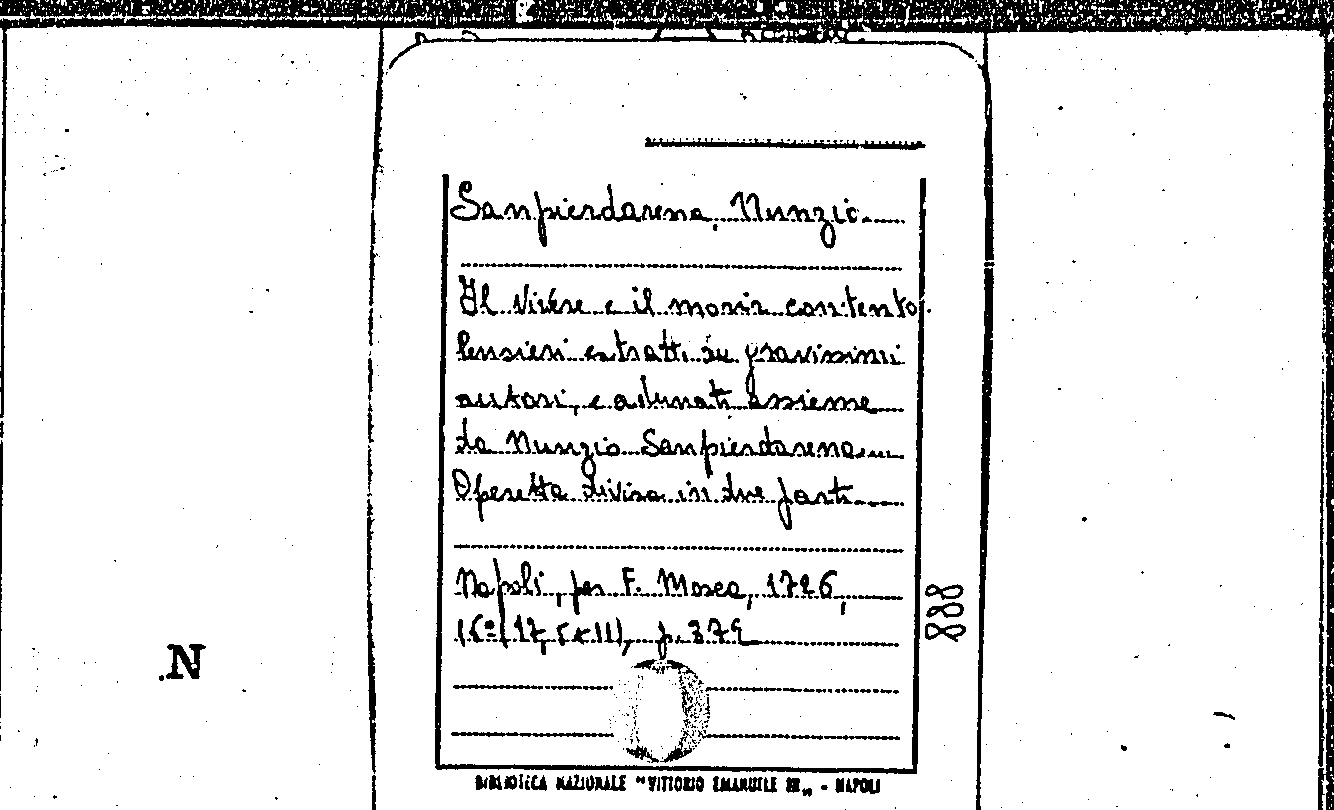 Sanpierdarena, Nunzio
Il vivere e il morir contento.
Pensieri estratti su gravissimi
autori, e adunati assieme
da Nunzio Sanpierdarena
Operetta divisa in due parti
Napoli, per F. Mosca, 1726,
16º p. 379
888
N
BIBLIOTECA NAZIONALE "VITTORIO EMANUELE III„ - NAPOLI